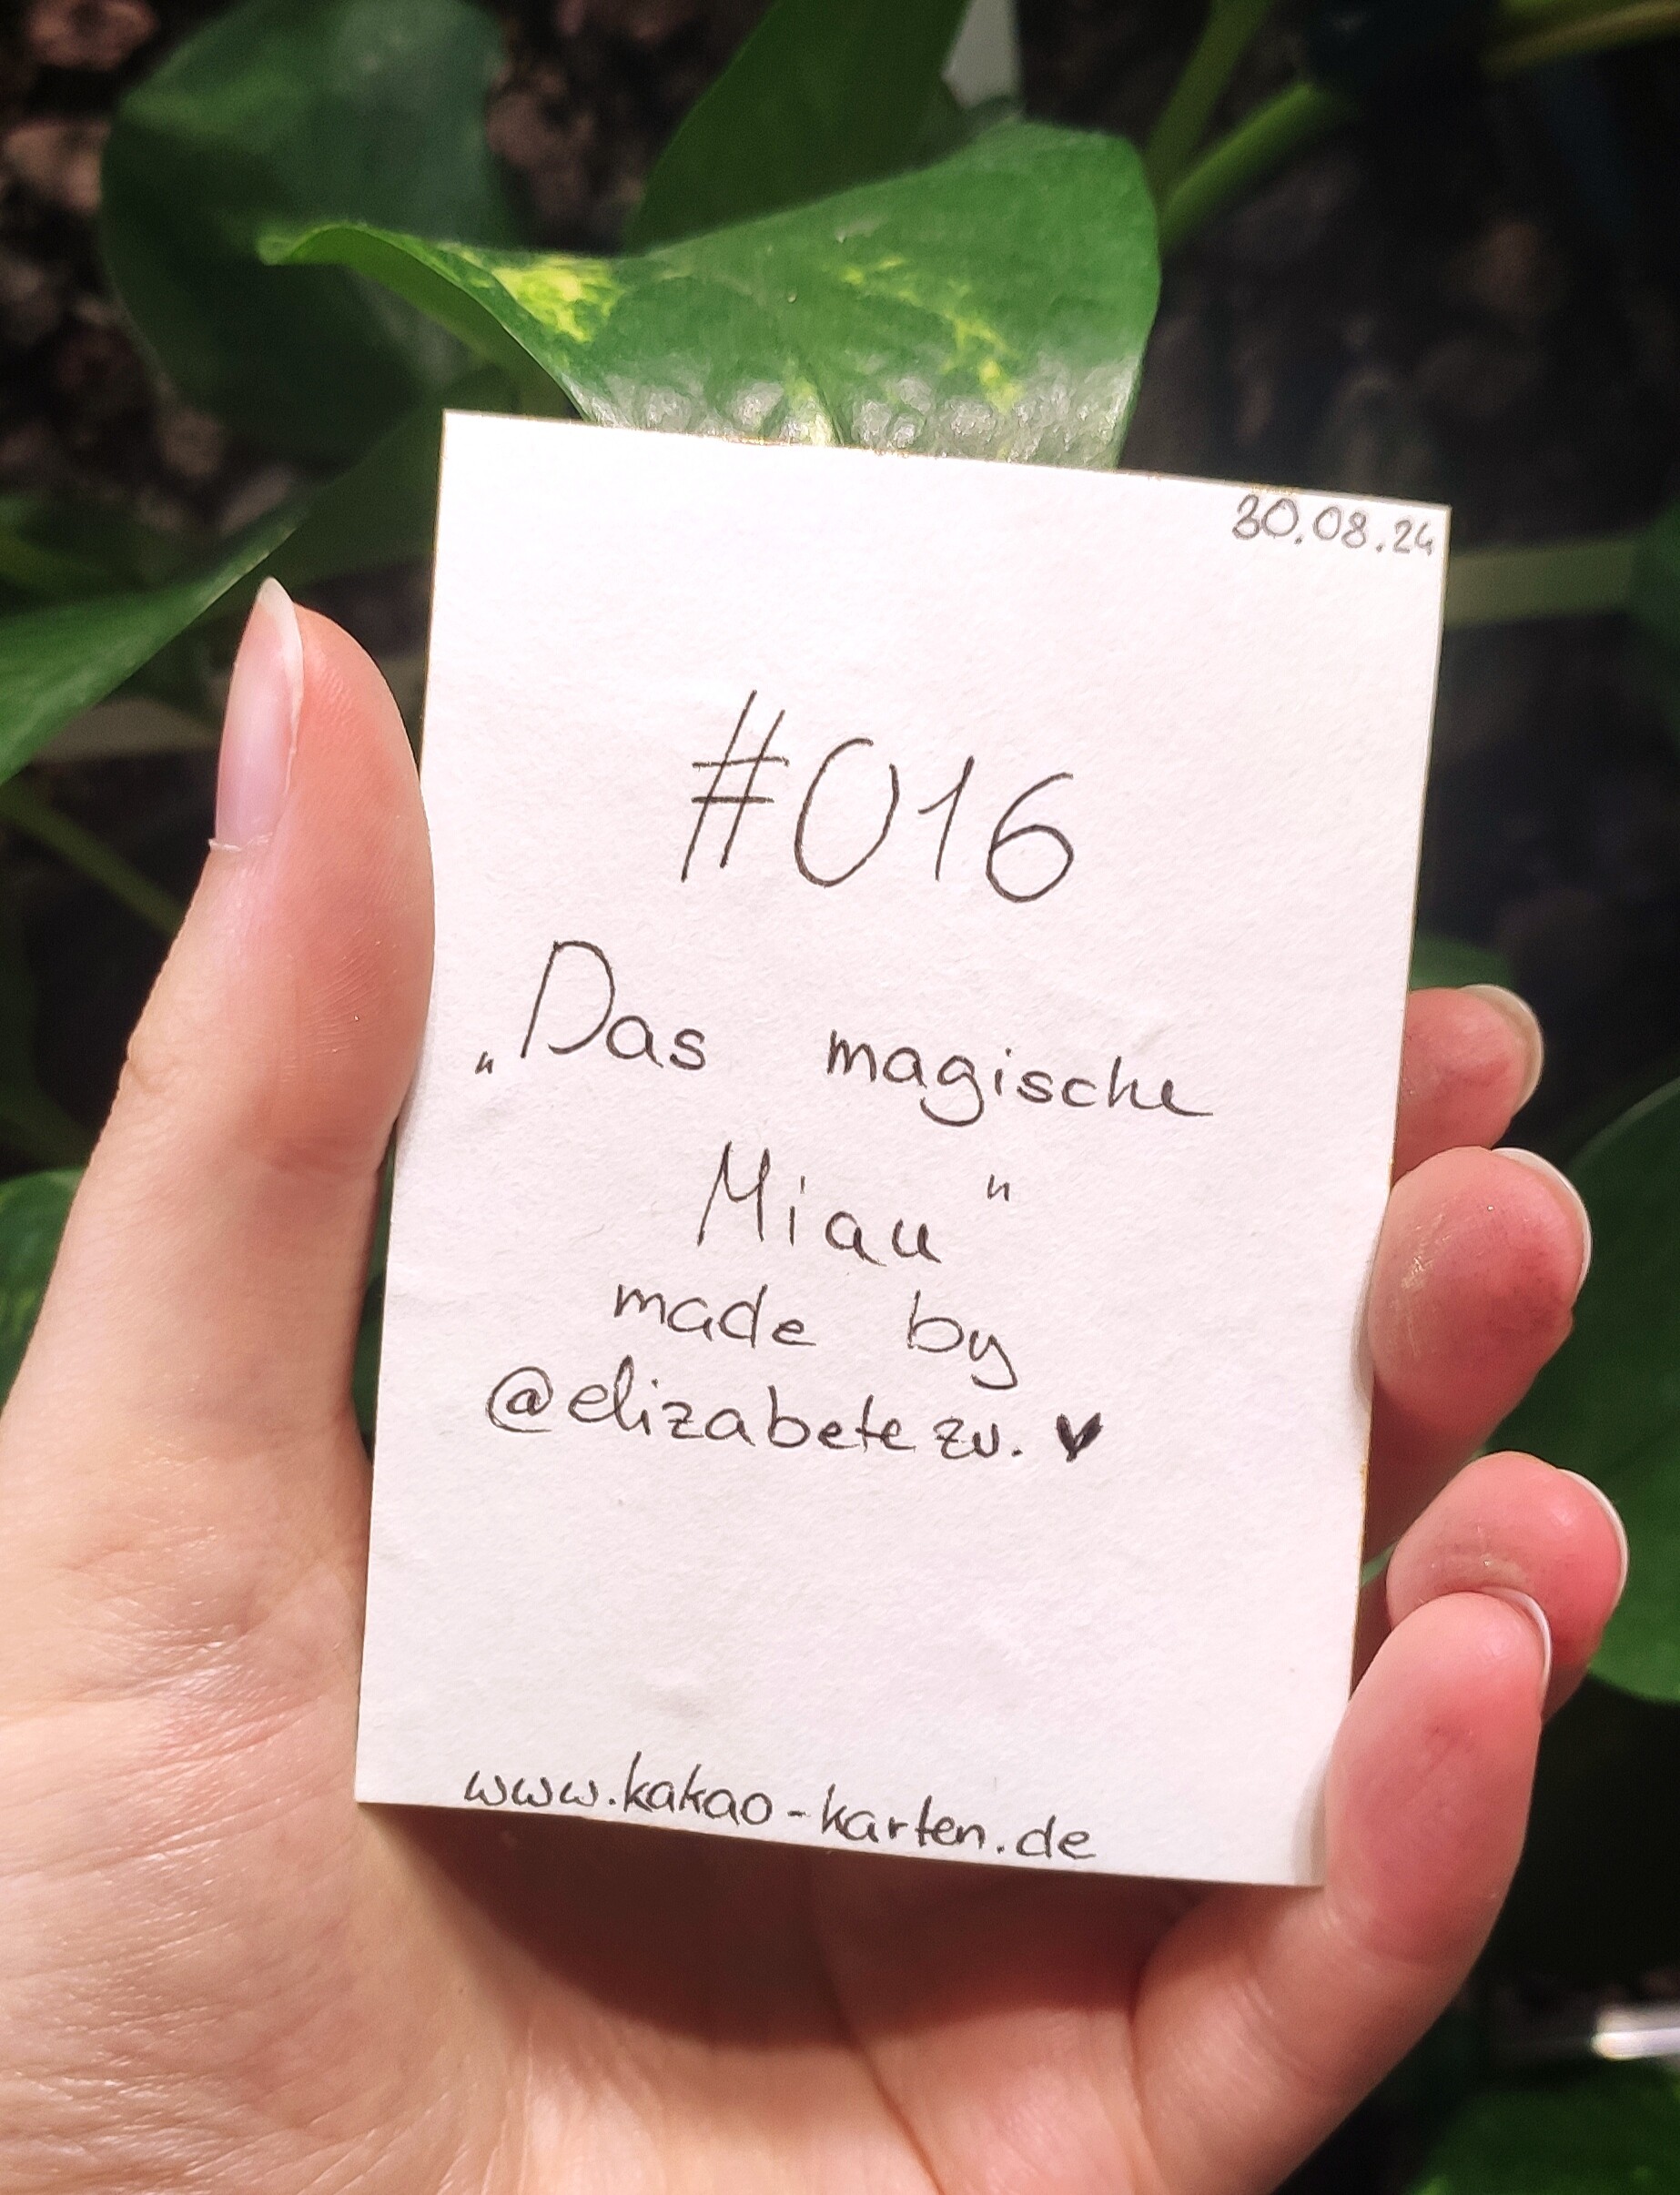 30.08.24
#016
„Das magische
Miau"
made by
@elizabetezv. ♥
www.kakao-karten.de